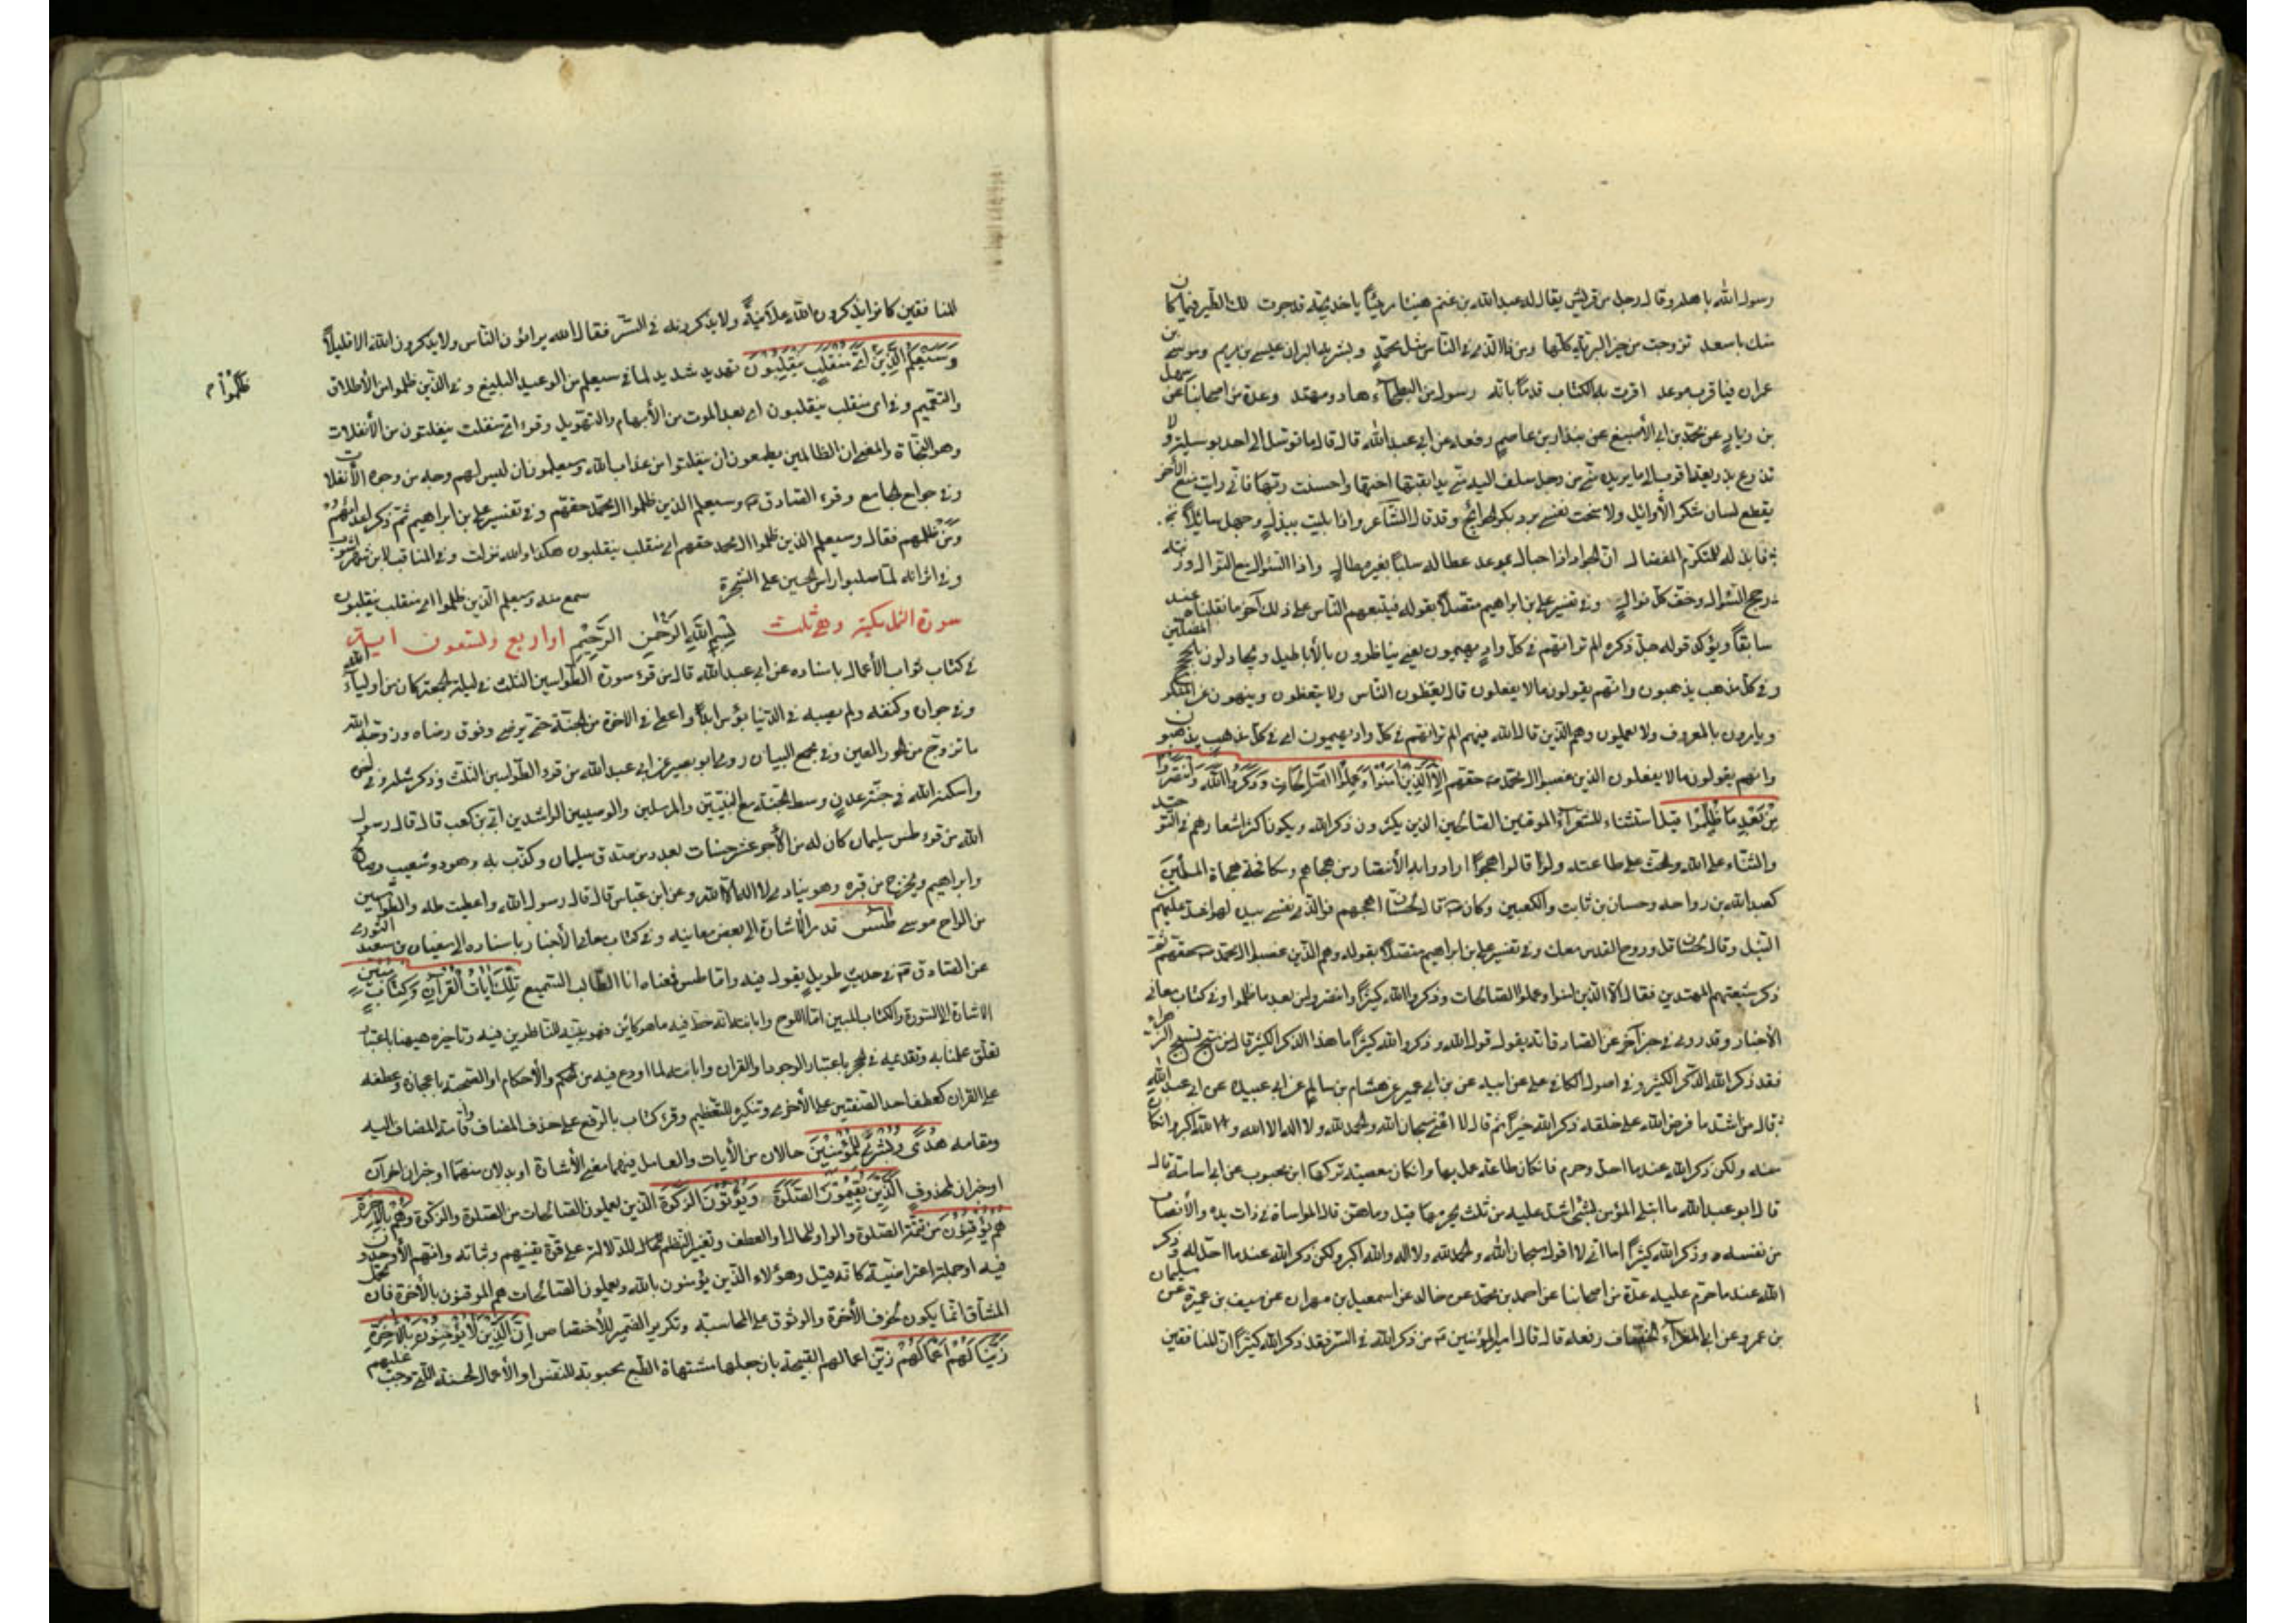 رسول الله يا اهله وقال رجل من قريش يقال له عبد الله بن غنم هنيئا مريئا يا خديجة قد جرت لك الطير فيما كان
منك باسعد تزوجت من خير البرية كلها ومن ذا الذي في الناس مثل محمد وبشر به البران عيسى بن مريم وموسى بن
عمران فيا قرب موعد اقرت به الكتاب قدما بانه رسول من البطحاء هاد ومهتد وعدة من اصحابنا عن سهل
بن زياد عن محمد بن ابي الأصبغ عن بندار بن عاصم رفعه عن ابي عبد الله قال قال ما توسل الى احد بوسيلة ولا
تذرع بذريعة اقرب له ما يريده مني من رجل سلف اليه مني يد اتبعتها اختها واحسنت ربها فاني رايت منع الأخر
يقطع لسان شكر الأوائل ولا سخت نفسي برد بكر الحوائج وقد قال الشاعر واذا بليت ببذل وجهك سائلا
فابذله للمتكرم المفضال ان الجواد اذا حباك بموعد عطاكه سلسا بغير مطال واذا السؤال مع النوال وزنته
رجح السؤال وخف كل نوال وفي تفسير علي بن ابراهيم متصلا بقوله فيتبعهم الناس على ذلك آخر ما نقلنا عنه
سابقا ويؤكد قوله جل ذكره الم تر انهم في كل واد يهيمون يعني يناظرون بالأباطيل ويجادلون بالحجج المضلين
وفي كل مذهب يذهبون وانهم يقولون ما لا يفعلون قال يعظون الناس ولا يتعظون وينهون عن المنكر
ويامرون بالمعروف ولا يعملون وهم الذين قال الله فيهم الم تر انهم في كل واد يهيمون اي في كل مذهب يذهبون
وانهم يقولون ما لا يفعلون الذين غصبوا ال محمد حقهم إلا الذين آمنوا وعملوا الصالحات وذكروا الله وانتصروا
من بعد ما ظلموا قيل استثناء للشعراء الموقنين الصالحين الذين يكثرون ذكر الله ويكون اكثر اشعارهم في التوحيد
والثناء على الله والحث على طاعته ولو قالوا هجوا ارادوا به الأنتصار من هجاهم ومكافحة هجاة المسلمين
كعبد الله بن رواحه وحسان بن ثابت والكعبين وكان قال لحسان اهجهم فو الذي نفسي بيده لهو اشد عليهم من
النبل وقال لحسان قل وروح القدس معك وفي تفسير علي بن ابراهيم متصلا بقوله وهم الذين غصبوا ال محمد حقهم ثم
ذكر شيعتهم المهتدين فقال الا الذين امنوا وعملوا الصالحات وذكروا الله كثيرا وانتصروا من بعد ما ظلموا وفي كتاب معاني
الأخبار وقد روي في خبر آخر عن الصادق انه يقول قول الله وذكروا الله كثيرا ما هذا الذكر الكثير قال من سبح تسبيح الزهراء
فقد ذكر الله الذكر الكثير وفي اصول الكافي علي عن ابيه عن بن ابي عمير عن هشام بن سالم عن ابي عبيدة عن ابي عبد الله
قال من اشد ما فرض الله على خلقه ذكر الله كثيرا ثم قال لا اعني سبحان الله والحمد لله ولا اله الا الله والله اكبر وان كان
منه ولكن ذكر الله عند ما احل وحرم فان كان طاعة عمل بها وان كان معصية تركها ابن محبوب عن ابي اسامة قال
قال ابو عبد الله ما ابتلي المؤمن بشئ اشد عليه من ثلث يحرمها قيل وما هن قال المواساة في ذات يده والأنصاف
من نفسه وذكر الله كثيرا اما اني لا اقول سبحان الله والحمد لله ولا اله والله اكبر ولكن ذكر الله عند ما احل له وذكر
الله عند ما حرم عليه عدة من اصحابنا عن احمد بن محمد عن خالد عن اسمعيل بن مهران عن سيف بن عميرة عن سليمان
بن عمرو عن ابي المغراء الخصاف رفعه قال قال امير المؤمنين من ذكر الله في السر فقد ذكر الله كثيرا ان المنافقين
المنافقين كانوا يذكرون الله علانية ولا يذكرونه في السر فقال الله يراؤن الناس ولا يذكرون الله الا قليلا
وسيعلم الذين أي منقلب ينقلبون تهديد شديد لما في سيعلم من الوعيد البليغ وفي الذين ظلموا من الأطلاق
ظلموا
والتعميم وفي اي منقلب ينقلبون اي بعد الموت من الأبهام والتهويل وقرء اي منفلت ينفلتون من الأنفلات
وهو النجاة والمعنى ان الظالمين يطمعون ان ينفلتوا من عذاب الله وسيعلمون ان ليس لهم وجه من وجوه الأنفلات
وفي جوامع الجامع وقرء الصادق وسيعلم الذين ظلموا ال محمد حقهم وفي تفسير علي بن ابراهيم ثم ذكر اعدائهم
ومن ظلمهم فقال وسيعلم الذين ظلموا ال محمد حقهم اي منقلب ينقلبون هكذا والله نزلت وفي المناقب لابن شهرآشوب
وفي اثر انه لما صلبوا راس الحسين على الشجرة سمع منه وسيعلم الذين ظلموا اي منقلب ينقلبون
سورة النمل مكية وهي ثلث بسم الله الرحمن الرحيم او اربع وتسعون اية
في كتاب ثواب الأعمال باسناده عن ابي عبد الله قال من قرء سورة الطواسين الثلث في ليلة الجمعة كان من اولياء الله
وفي جواره وكنفه ولم يصبه في الدنيا بؤس ابدا واعطي في الآخرة من الجنة حتى يرضى وفوق رضاه وزوجه الله
مائة زوج من الحور العين وفي مجمع البيان روى ابو بصير عن ابي عبد الله من قرء الطواسين الثلث وذكر مثله وفي
واسكنه الله في جنة عدن وسط الجنة مع النبيين والمرسلين والوصيين الراشدين ابي بن كعب قال قال رسول
الله من قرء طس سليمان كان له من الأجر عشر حسنات بعدد من صدق سليمان وكذب به وهود وشعيب وصالح
وابراهيم ويخرج من قبره وهو ينادي لا اله الا الله وعن ابن عباس قال قال رسول الله واعطيت طه والطواسين
من الواح موسى طس قد مر الاشارة الى بعض معانيه وفي كتاب معاني الأخبار باسناده الى سفيان بن سعيد الثوري
عن الصادق في حديث طويل يقول فيه واما طس فمعناه انا الطالب السميع تلك آيات القرآن وكتاب مبين
الاشارة الى السورة والكتاب المبين اما اللوح وابانته انه خط فيه ما هو كائن فهو يبينه للناظرين فيه وتاخيره ههنا باعتبار
تعلق علمنا به وتقديمه في الحجر باعتبار الوجود او القرآن وابانته لما اودع فيه من الحكم والأحكام او لصحته باعجازه وعطفه
على القران كعطف احد الصفتين على الأخرى وتنكيره للتعظيم وقرء كتاب بالرفع على حذف المضاف واقامة المضاف اليه
ومقامه هدى وبشرى للمؤمنين حالان من الأيات والعامل فيهما معنى الأشارة او بدلان منهما او خبران اخران
او خبران لمحذوف الذين يقيمون الصلوة ويؤتون الزكوة الذين يعملون الصالحات من الصلوة والزكوة وهم بالآخرة
هم يوقنون من تتمة الصلة والواو للحال او العطف وتغيير النظم للدلالة على قوة يقينهم وثباته وانهم الأوحدون
فيه او جملة اعتراضية كانه قيل وهؤلاء الذين يؤمنون بالله ويعملون الصالحات هم الموقنون بالأخرة فان تحمل
المشاق انما يكون لخوف الأخرة والوثوق على المحاسبة وتكرير الضمير للأختصاص إن الذين لا يؤمنون بالآخرة
زينا لهم أعمالهم زين اعمالهم القبيحة بان جعلها مشتهاة الطبع محبوبة للنفس او الأعمال الحسنة التي وجب عليهم